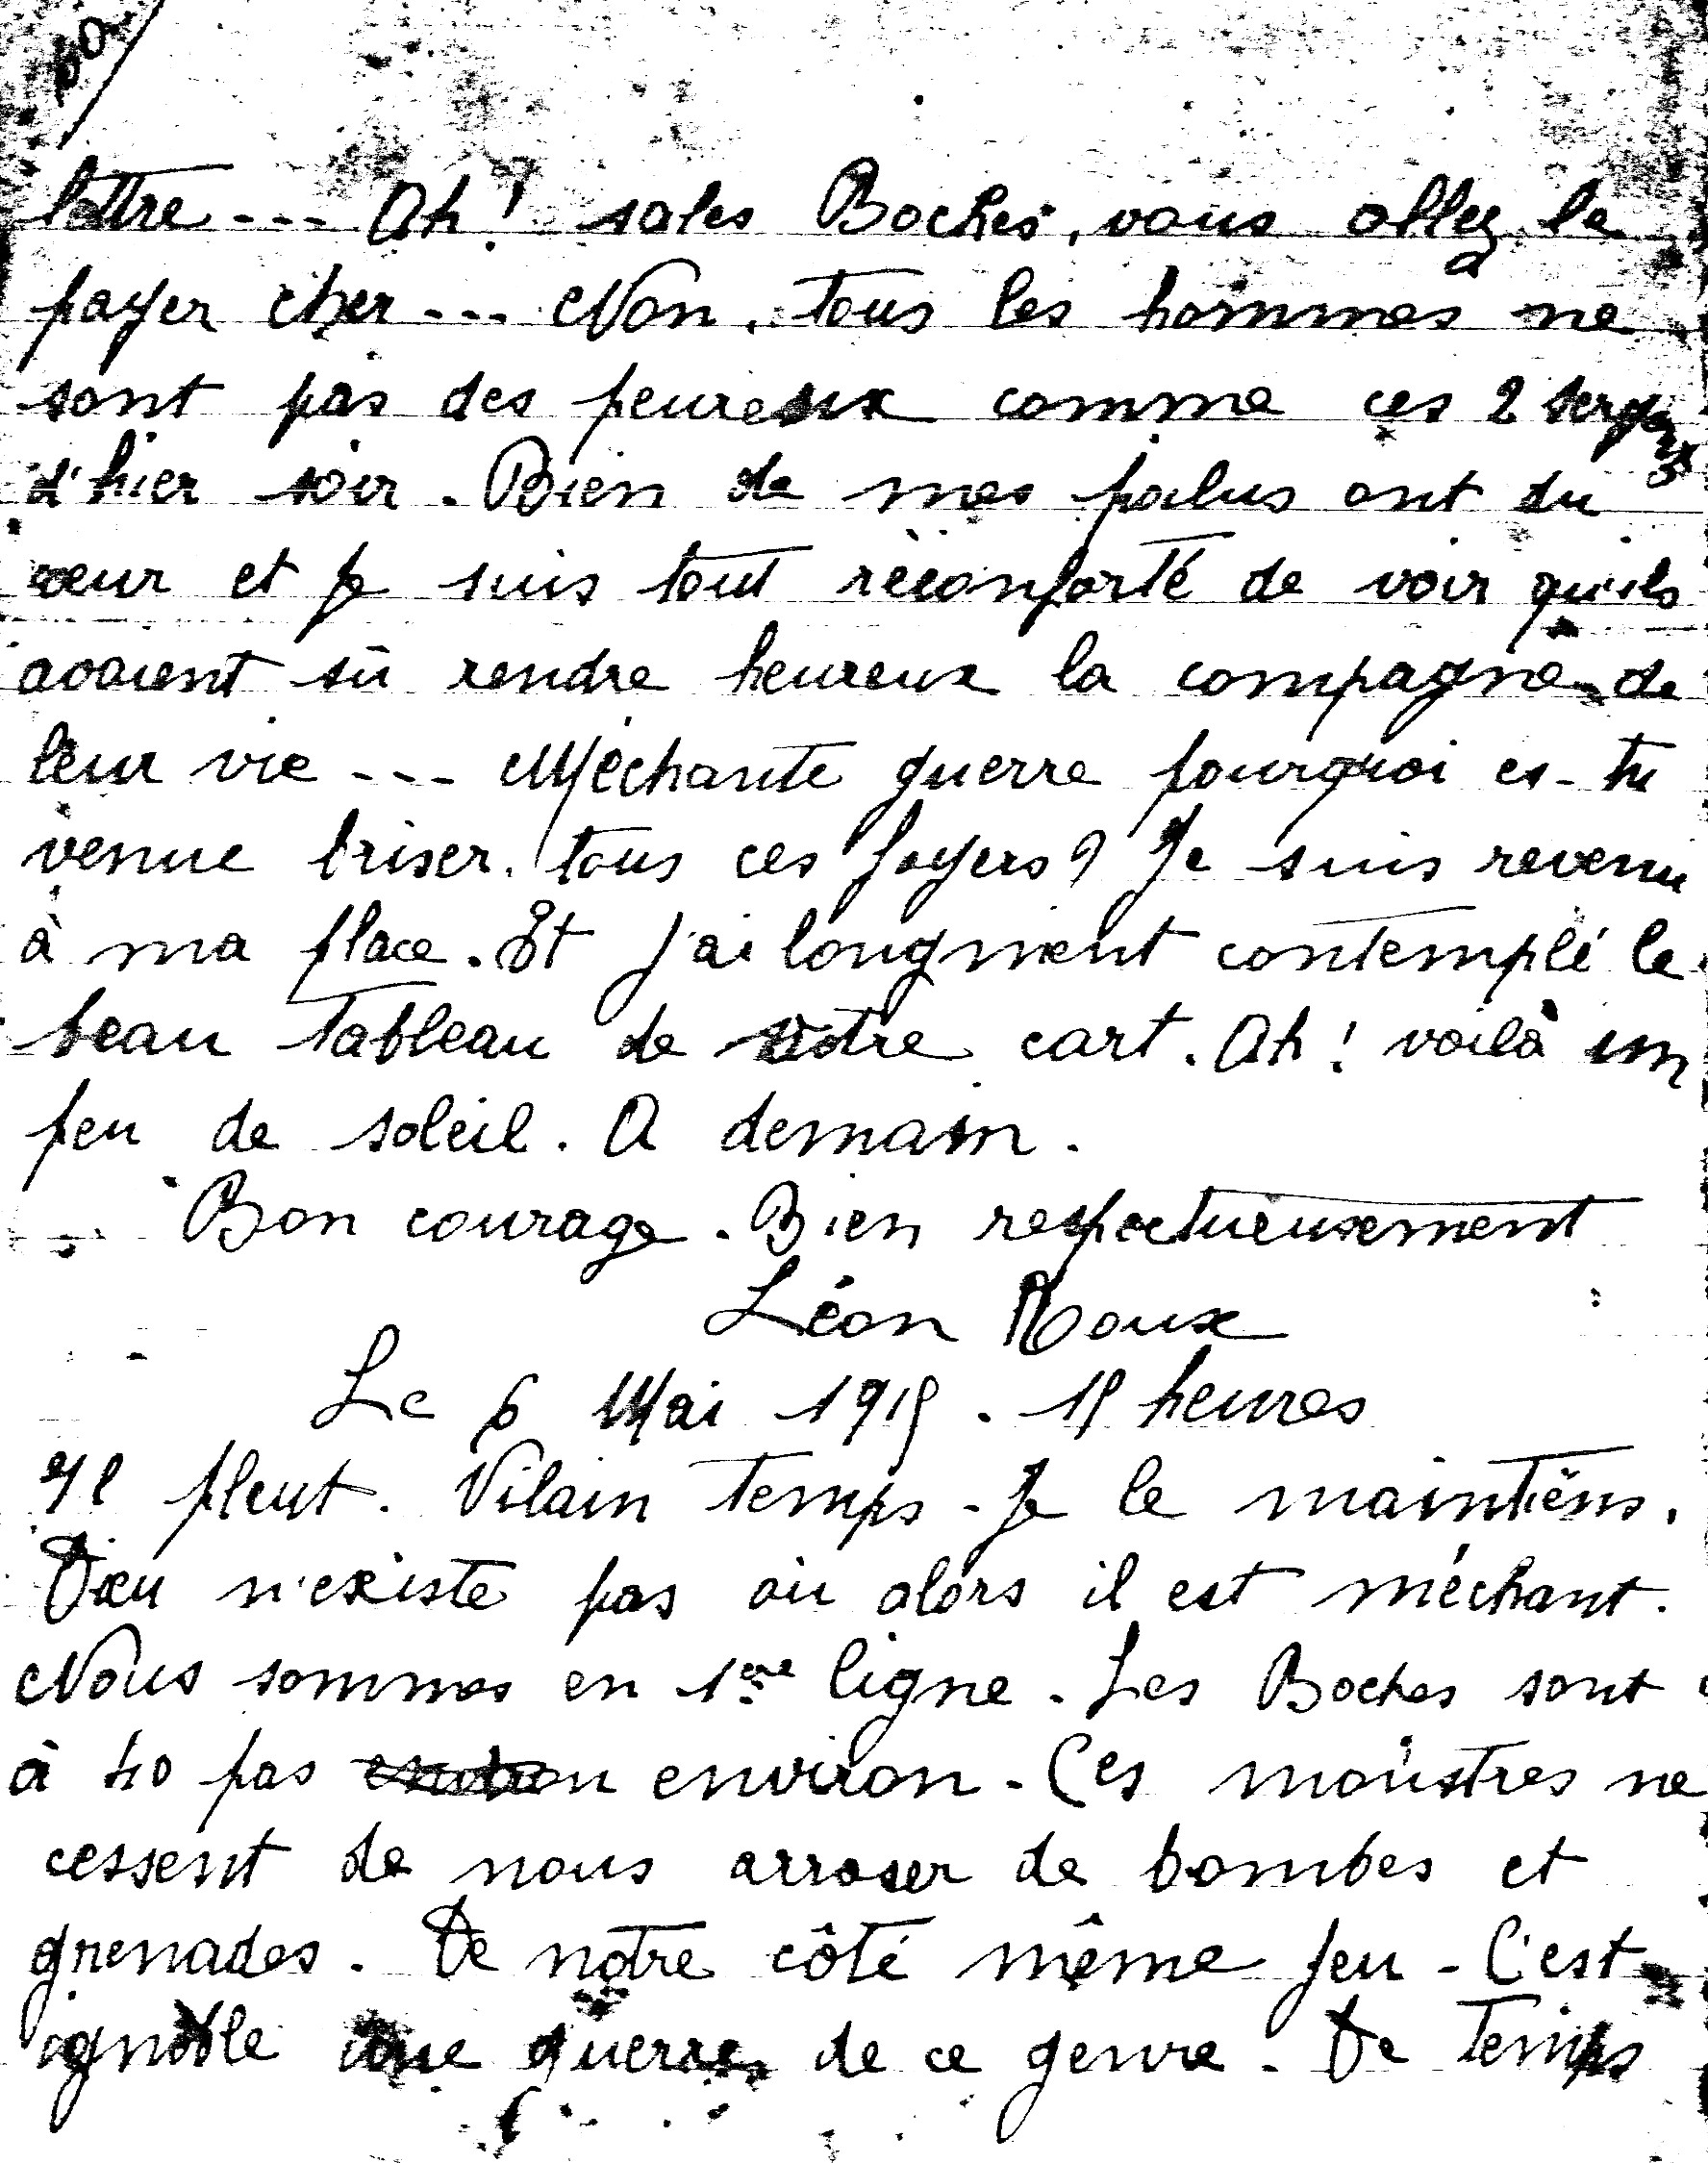 60
lettre --- Ah! sales Boches, vous allez le
payer cher --- Non, tous les hommes ne
sont pas des peureux comme ces 2 sergents
d'hier soir. Bien de mes poilus ont du
cœur et je suis tout réconforté de voir qu'ils
avaient sû rendre heureux la compagne de
leur vie --- Méchante guerre pourquoi es-tu
venue briser tous ces foyers? Je suis revenu
à ma place. Et j'ai longment contemplé le
beau tableau de votre cart. Ah! voilà un
peu de soleil. A demain.
Bon courage. Bien respectueusement
Léon Roux
Le 6 Mai 1915. 15 heures
Il pleut. Vilain temps - Je le maintiens.
Dieu n'existe pas ou alors il est méchant.
Nous sommes en 1ère ligne. Les Boches sont
à 40 pas environ - Ces monstres ne
cessent de nous arroser de bombes et
grenades. De notre côté même jeu - C'est
ignoble une guerre de ce genre. De temps